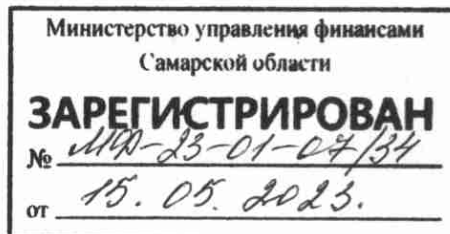 Министерство управления финансами
Самарской области
ЗАРЕГИСТРИРОВАН
№ МФ-23-01-07/34
от 15. 05. 2023.